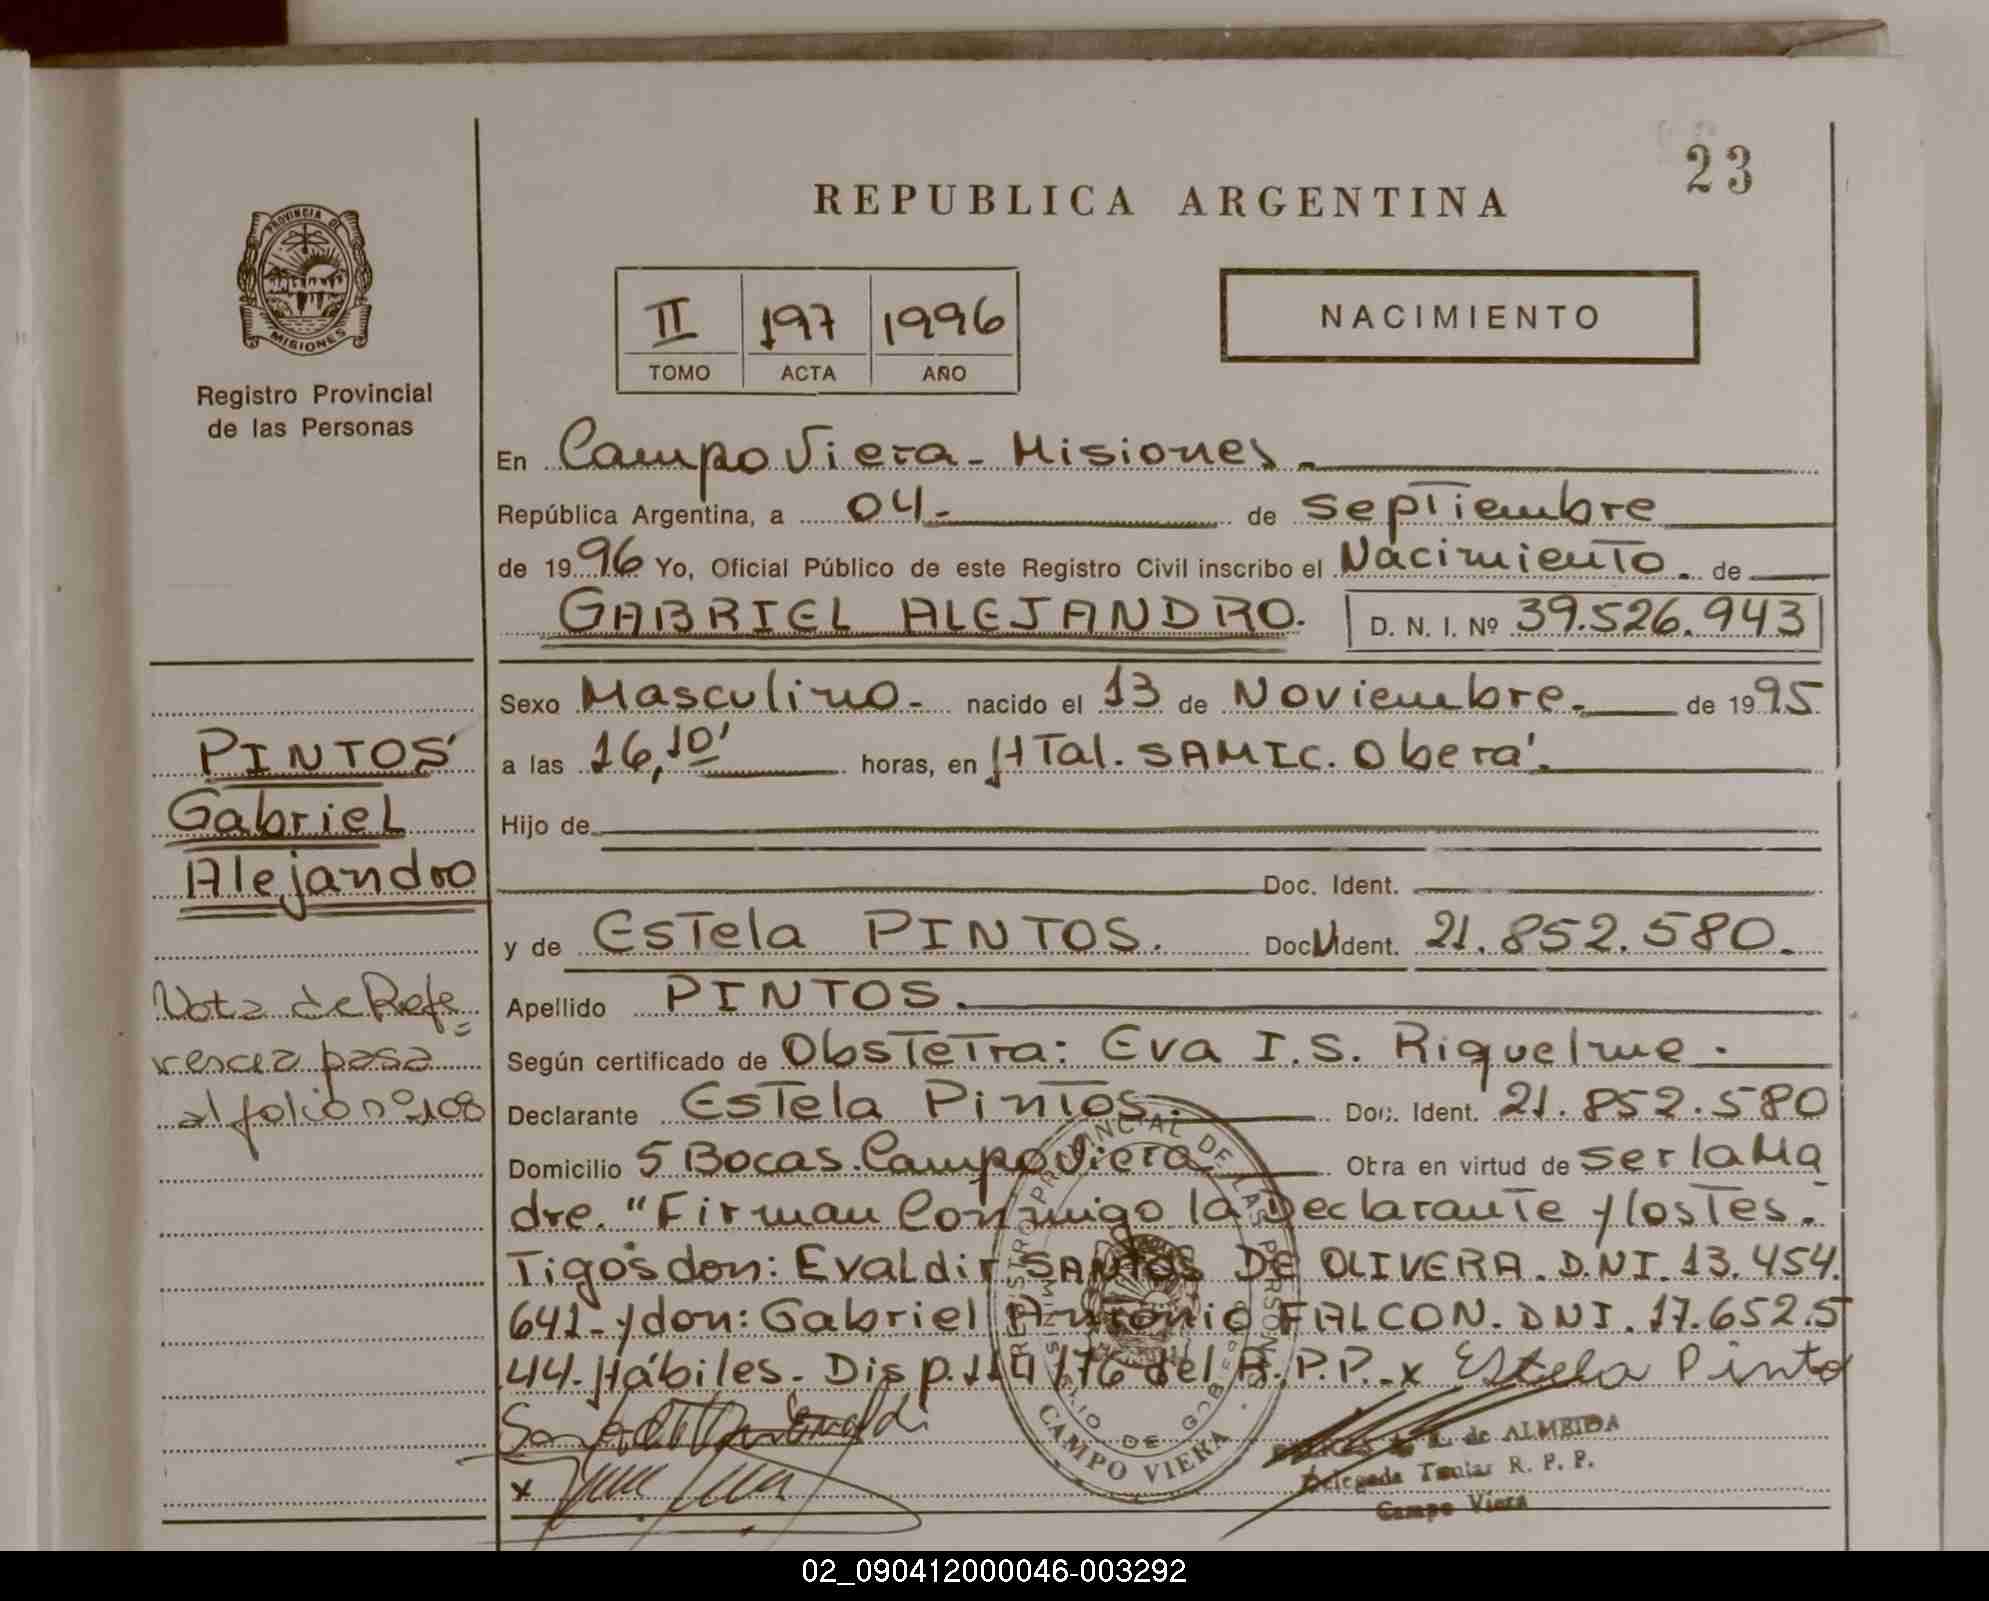 23
REPUBLICA ARGENTINA
PROVINCIA DE
MISIONES
Registro Provincial
de las Personas
II 197 1996
TOMO ACTA AÑO
NACIMIENTO
En Campo Viera - Misiones.
República Argentina, a 04.- de septiembre
de 1996 Yo, Oficial Público de este Registro Civil inscribo el Nacimiento. de
GABRIEL ALEJANDRO. D. N. I. Nº 39.526.943
Sexo Masculino.- nacido el 13 de Noviembre. de 1995
a las 16,10' horas, en HTal. SAMIC. Oberá.
Hijo de
Doc. Ident.
y de Estela PINTOS. Doc. Ident. 21.852.580.
Apellido PINTOS.
Según certificado de Obstetra: Eva I.S. Riquelme.
Declarante Estela Pintos. Doc. Ident. 21.852.580
Domicilio 5 Bocas. Campo Viera Otra en virtud de ser la Ma
dre. "Firman Conmigo la Declarante y los Tes-
Tigos don: Evaldir SANTOS DE OLIVERA. D.NI. 13.454.
641- y don: Gabriel Antonio FALCON. DNI. 17.652.5
44. Hábiles. Disp. 114/76 del R.P.P. x Estela Pinto
x
de ALMEIDA
Delegada Titular R. P. P.
Campo Viera
PINTOS
Gabriel
Alejandro
Nota de Refe=
rencia pasa
al folio nº 108
REGISTRO PROVINCIAL DE LAS PERSONAS
MINISTERIO DE GOBIERNO
CAMPO VIERA
02_090412000046-003292